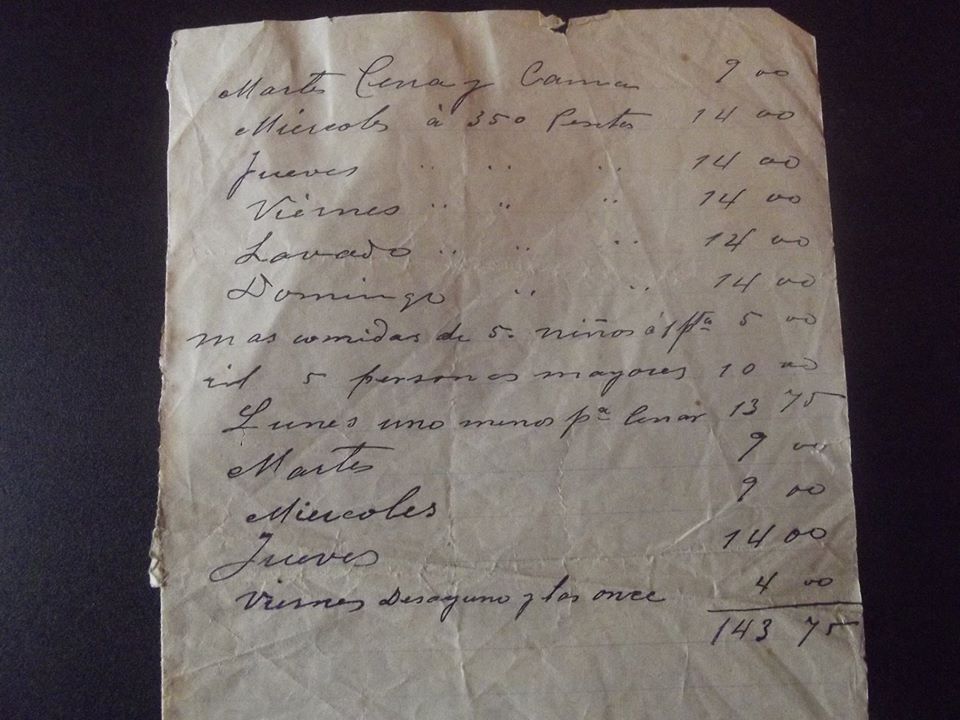 Martes Cena y Cama 9 00
Miercoles á 350 Pesetas 14 00
Jueves " " " 14 00
Viernes " " " 14 00
Lavado " " " 14 00
Domingo " " 14 00
mas comidas de 5 niños á 1 pta 5 00
5 personas mayores 10 00
Lunes uno menos pa Cenar 13 75
Martes 9 00
Miercoles 9 00
Jueves 14 00
Viernes Desayuno y las once 4 00
143 75